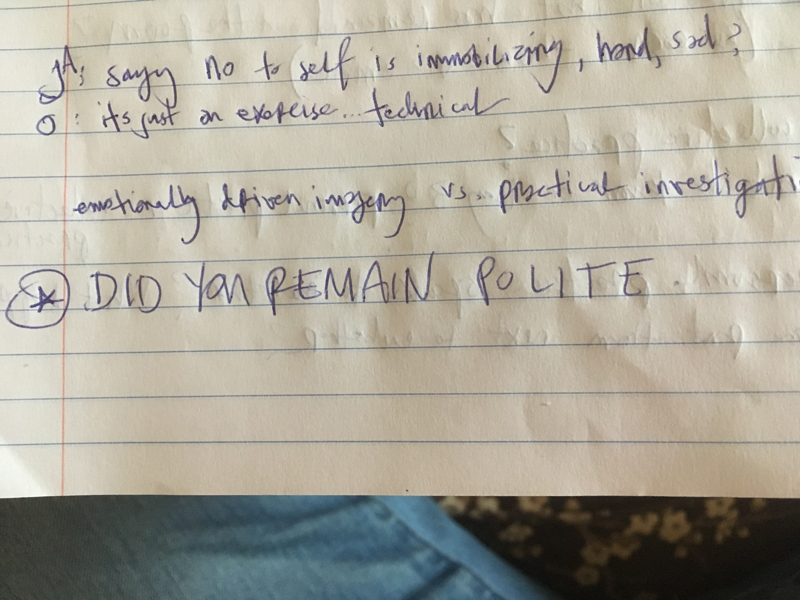 JA: sayy no to self is immobilizing, hard, sad?
O: its just an exercise... technical
emotionally driven imagery vs. practical investigati
* DID YOU REMAIN POLITE.